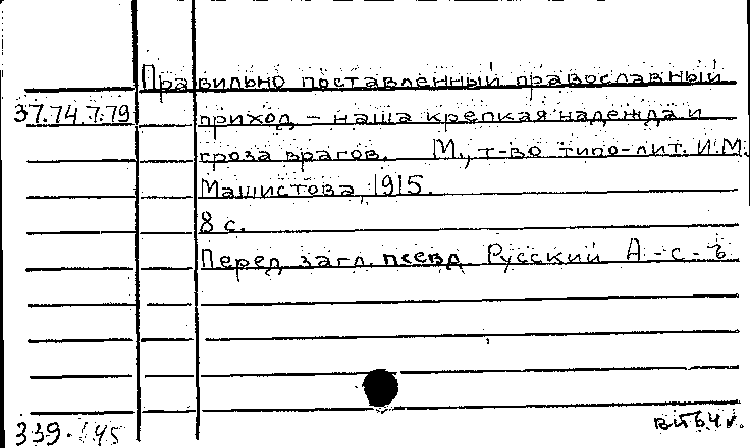 Правильно поставленный православный
37.74.7.79 приход, - наша крепкая надежда и
гроза врагов. М., т-во типо-лит. И.М.
Машистова, 1915.
8 с.
Перед загл. псевд. Русский А-с-ъ
339-